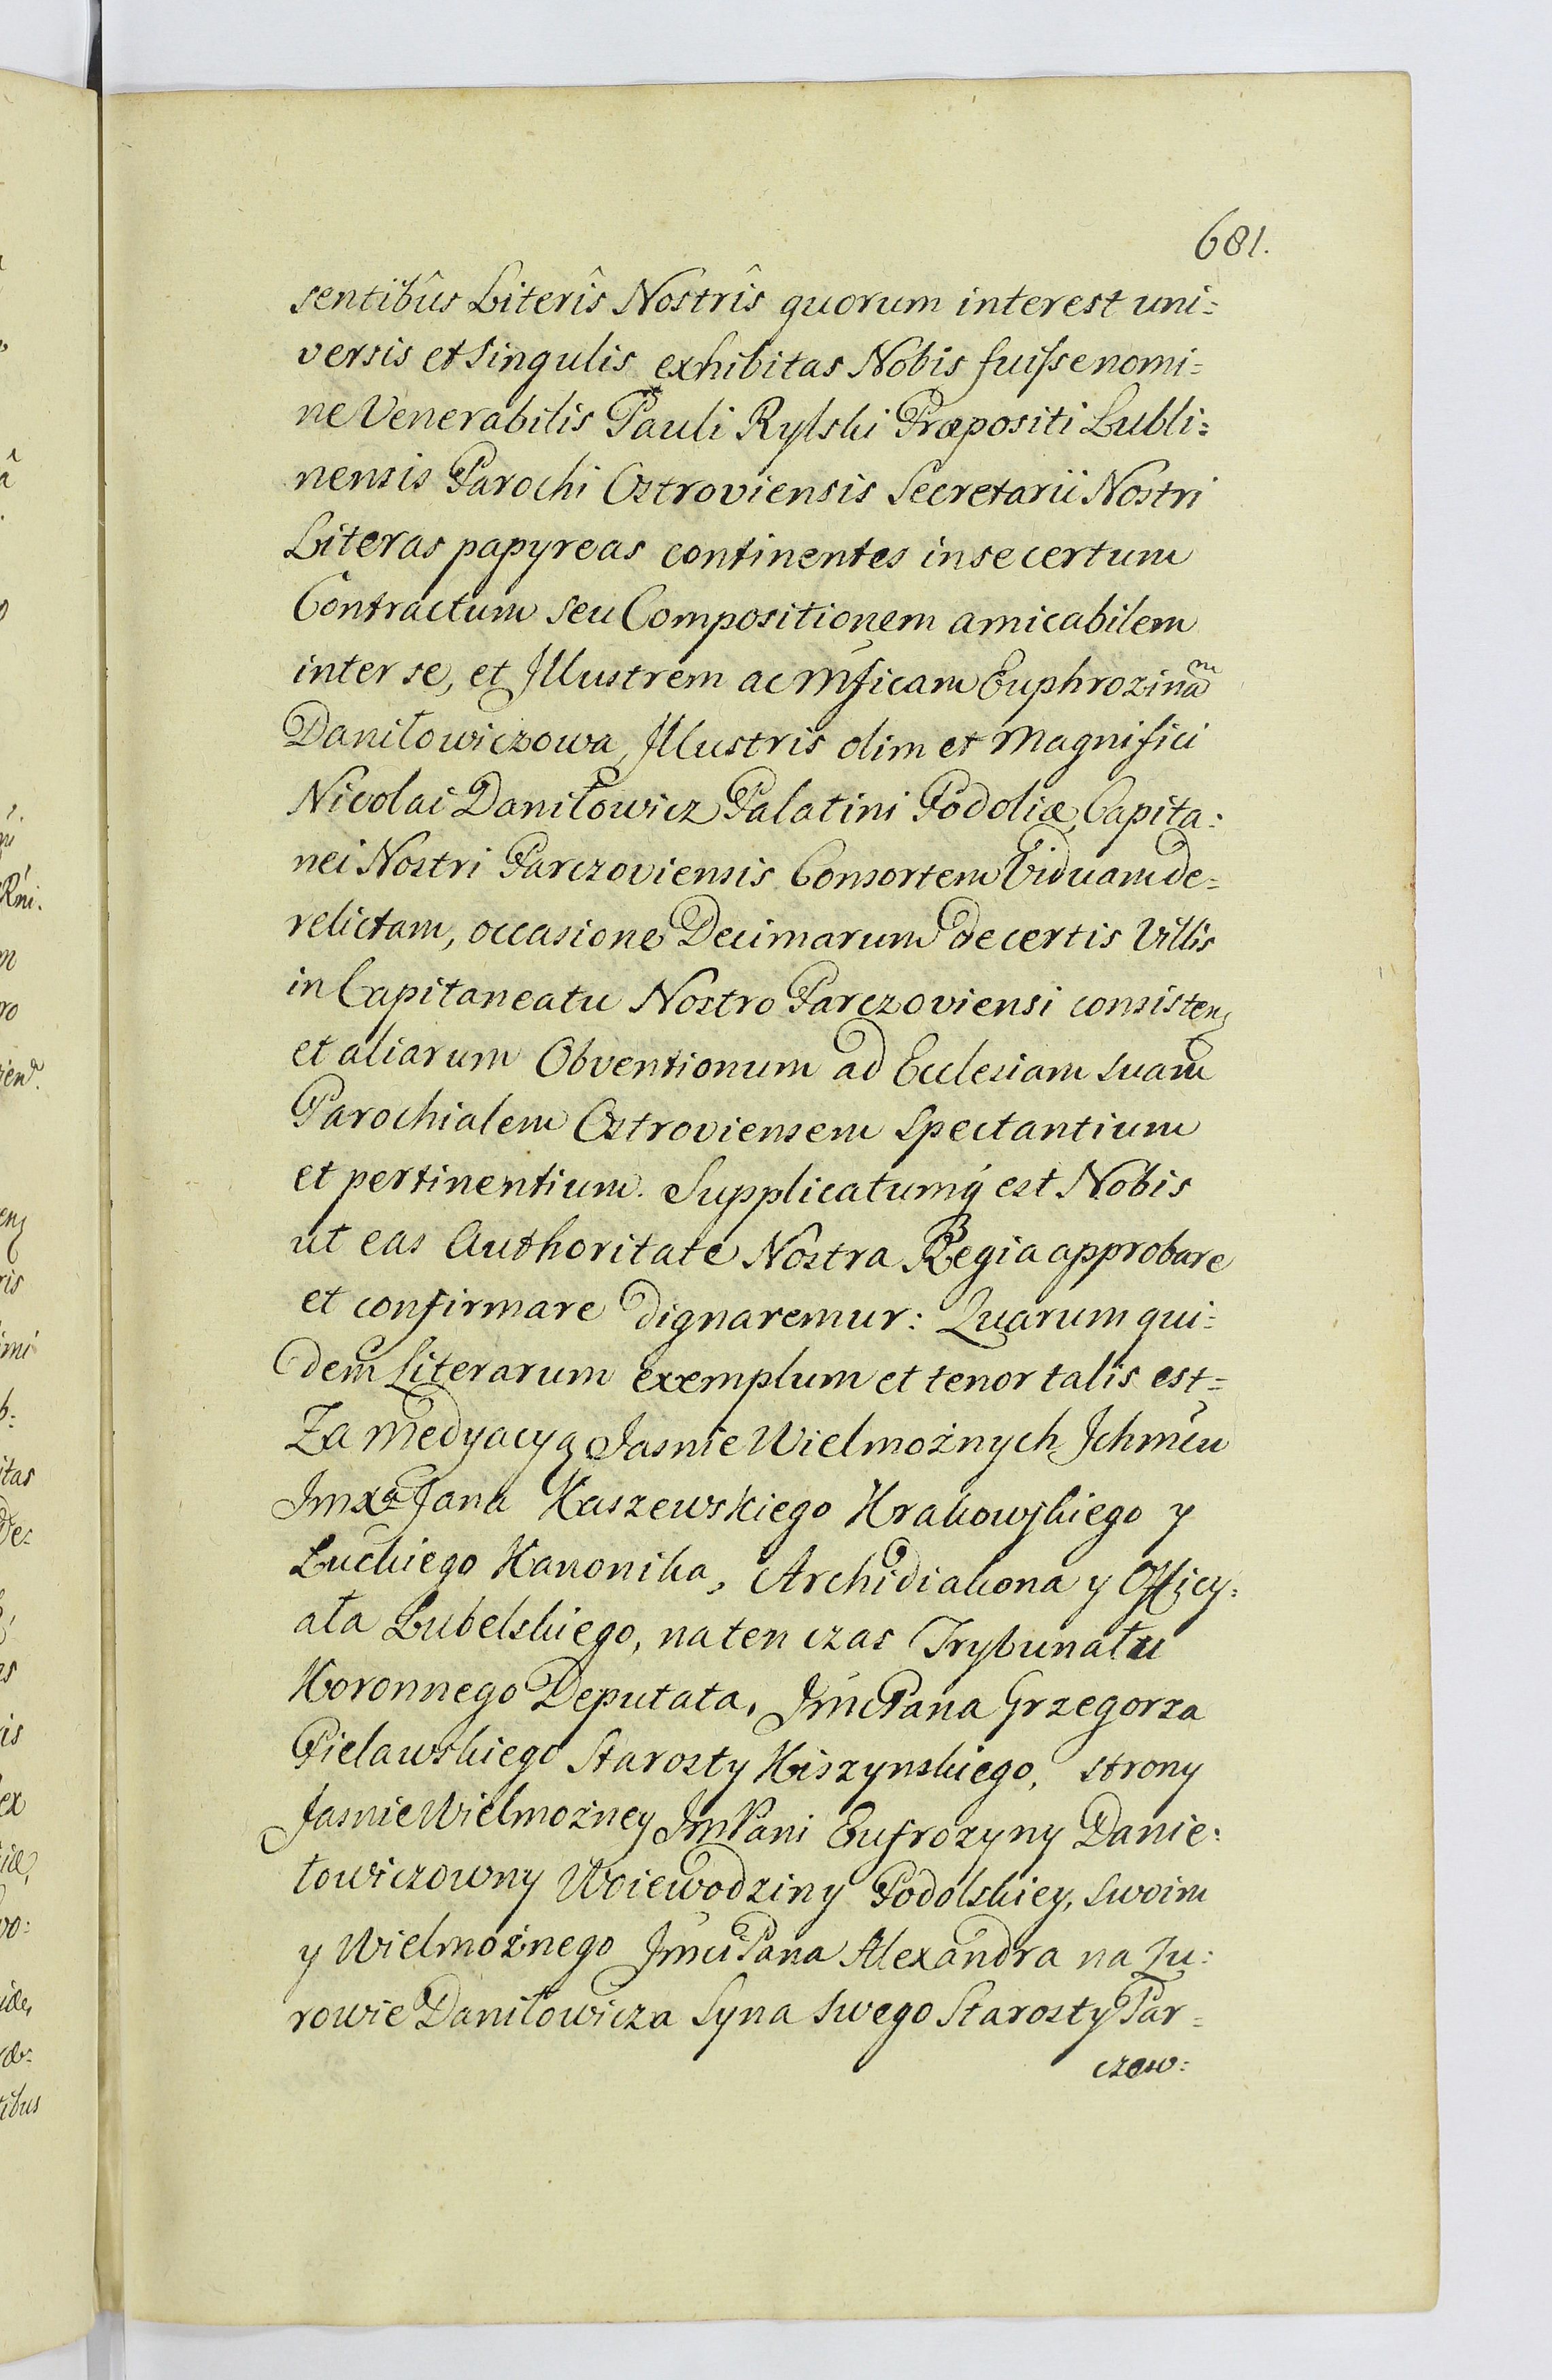 681.
sentibûs Literîs Nostrîs quorum interest uni=
versis et singulis exhibitas Nobis fuisse nomi=
ne Venerabilis Pauli Rylski Præpositi Lubli=
nensis Parochi Ostroviensis Secretarii Nostri
Literas papyreas continentes in se certum
Contractum seu Compositionem amicabilem
inter se, et Illustrem ac Mficam Euphrozinam
Daniłowiczowa, Illustris olim et Magnifici
Nicolai Daniłowicz Palatini Podoliæ, Capita:
nei Nostri Parczoviensis Consortem Viduam de=
relictam, occasione Decimarum de certis Villis
in Capitaneatu Nostro Parczoviensi consisten
et aliarum Obventionum ad Ecclesiam suam
Parochialem Ostroviensem spectantium
et pertinentium. Supplicatumq́ est Nobis
ut eas Authoritate Nostra Regia approbare
et confirmare dignaremur: Quarum qui=
dem Literarum exemplum et tenor talis est=
Za Medyacyą Jasnie Wielmożnych Ichmću
Jmxa Jana Kaszewskiego Krakowskiego y
Łuckiego Kanonika, Archidiakona y Officy:
ała Lubelskiego, na ten czas Trybunału
Koronnego Deputata, Jmć Pana Grzegorza
Pielawskiego Starosty Kiszynskiego, strony
Jasnie Wielmożney JmPani Eufrozyny Danie:
łowiczowny Woiewodziny Podolskiey, swoim
y Wielmożnego Jmći Pana Alexandra na Żu:
rowie Daniłowicza Syna swego Starosty Par=
czow: